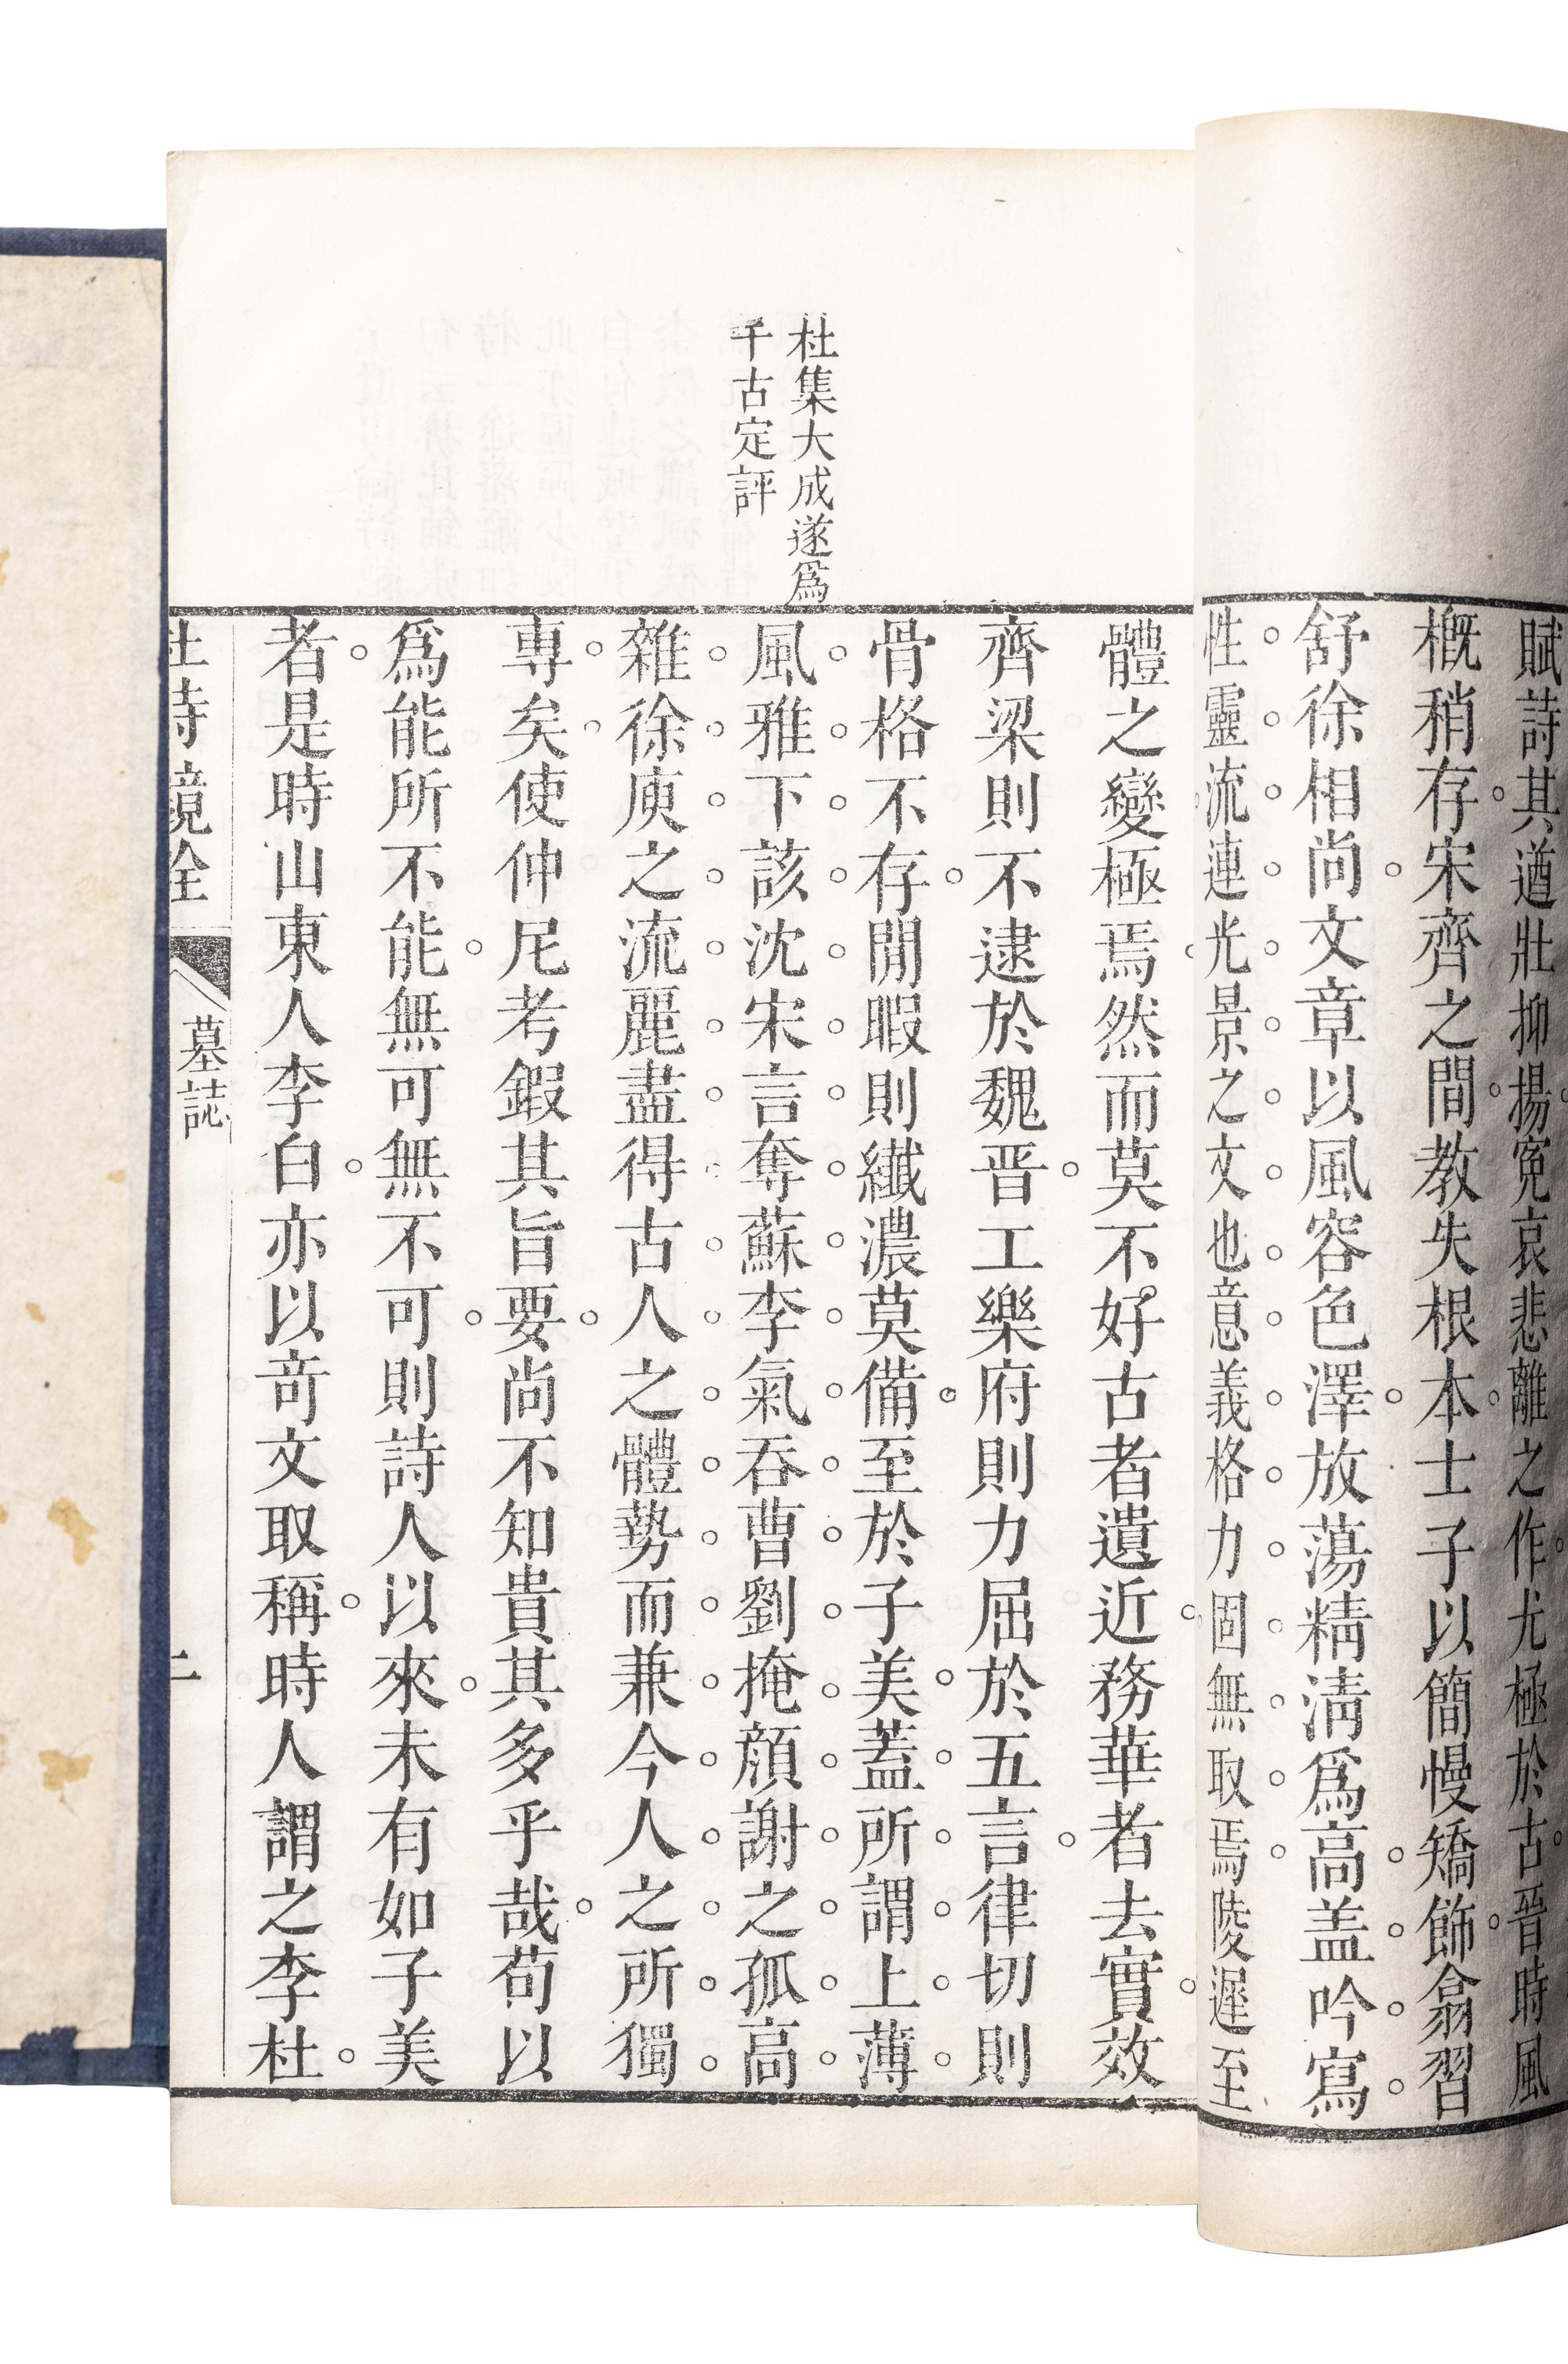 賦詩其遒壯抑揚冤哀悲離之作尤極於古晉時風
槪稍存宋齊之間教失根本士子以簡慢矯飾翕習
舒徐相尚文章以風容色澤放蕩精清爲高盖吟寫
性靈流連光景之文也意義格力固無取焉陵遲至
杜集大成遂爲
千古定評
體之變極焉然而莫不好古者遺近務華者去實效
齊梁則不逮於魏晋工樂府則力屈於五言律切則
骨格不存閒暇則纖濃莫備至於子美蓋所謂上薄
風雅下該沈宋言奪蘇李氣吞曹劉掩顏謝之孤高
雜徐庾之流麗盡得古人之體勢而兼今人之所獨
專矣使仲尼考鍜其旨要尚不知貴其多乎哉苟以
爲能所不能無可無不可則詩人以來未有如子美
者是時山東人李白亦以竒文取稱時人謂之李杜
杜詩鏡銓
墓誌